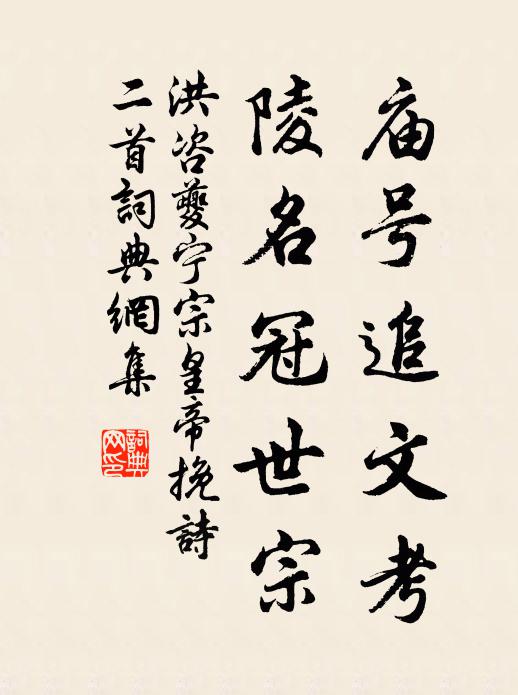 庙号追文考
陵名冠世宗
洪咨夔宁宗皇帝挽詩
二首詞典網集
詞典
网印